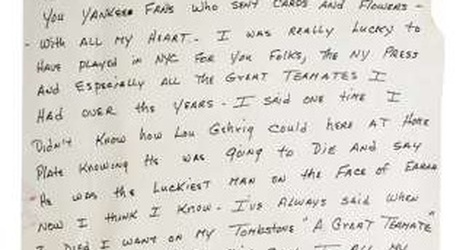 You YANKEE FANS WHO SENT CARDS AND FLOWERS -
- With ALL MY HEART - I WAS REALLY LUCKY to
HAVE PLAYED IN NYC FOR YOU FOLKS, THE NY PRESS
AND ESPECIALLY ALL THE GREAT TEAMATES I
HAD OVER the YEARS - I SAID ONE TIME I
Didn't KNOW how LOU GEHRIG COULD here AT HOME
PLATE KNOWING HE WAS GOING to DIE AND SAY
HE WAS the LUCKIEST MAN ON the FACE OF EARTH
NOW I THINK I KNOW - I'VE ALWAYS SAID WHEN
I DIED I WANT ON MY TOMBSTONE "A GREAT TEAMATE"
ALL MY